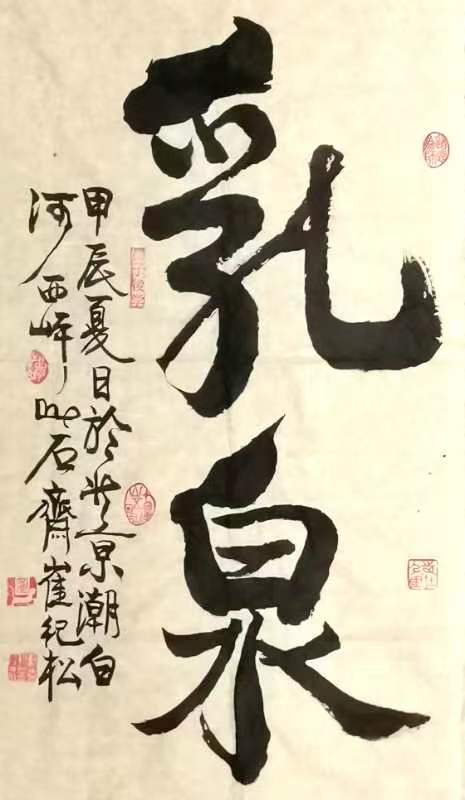 乳泉
甲辰夏日於北京潮白
河西岸石齋崔紀松